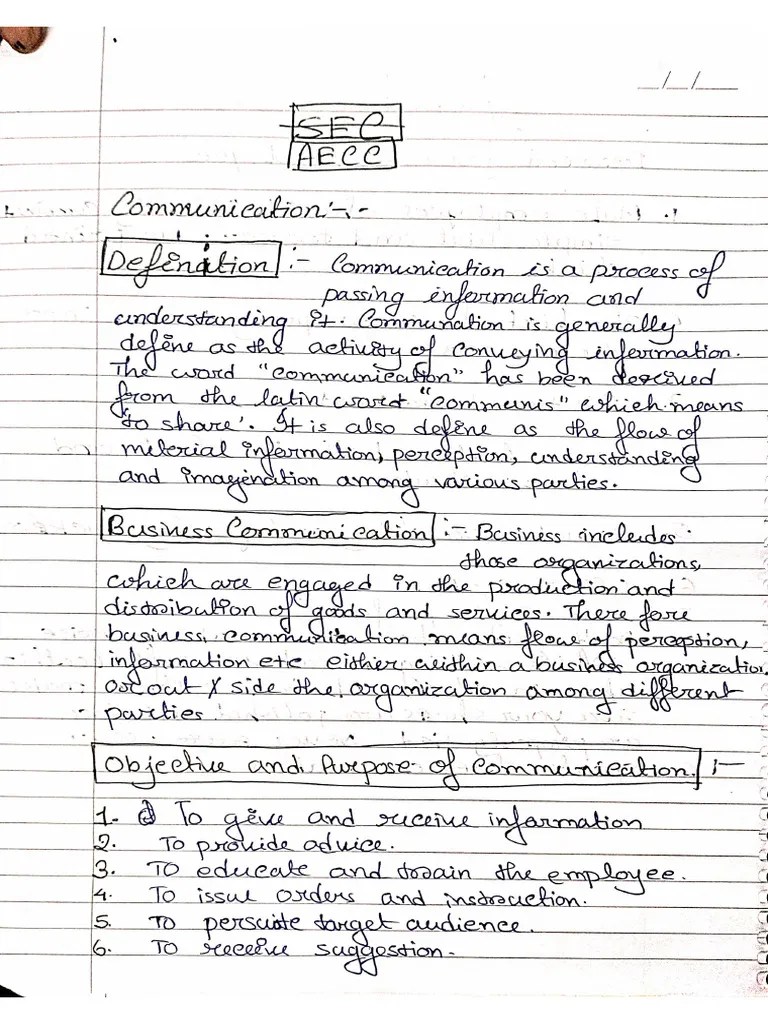 __/__/____
SEC
AECC
Communication :-
Defination :- Communication is a process of
passing information and
understanding it. Communation is generally
define as the activity of conveying information.
The word "communication" has been derived
from the latin word "communis" which means
'to share'. It is also define as the flow of
meterial information, perception, understanding
and imagination among various parties.
Business Communication :- Business includes
those organizations,
which are engaged in the production and
distribution of goods and services. There fore
business communication means flow of perception,
information etc either within a business organization
or out side the organization among different
parties
Objective and Purpose of Communication. :-
1. To give and receive information
2. To provide advice.
3. To educate and train the employee.
4. To issue orders and instruction.
5. To persuate target audience.
6. To receive suggestion.